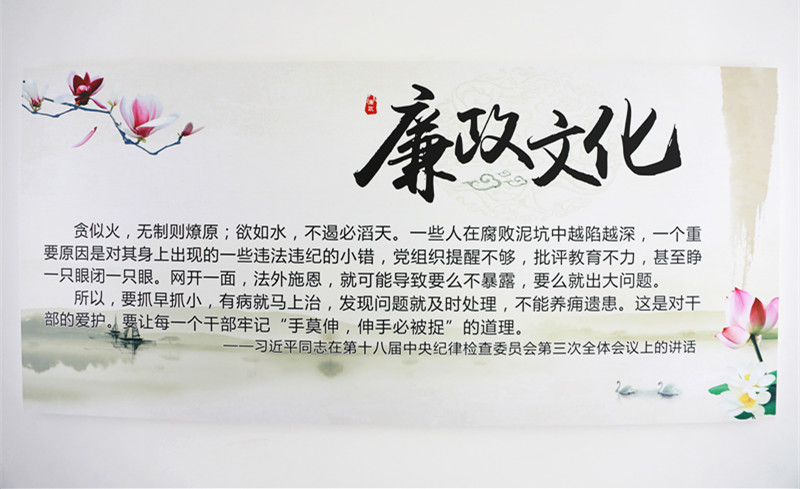 廉政文化
贪似火，无制则燎原；欲如水，不遏必滔天。一些人在腐败泥坑中越陷越深，一个重
要原因是对其身上出现的一些违法违纪的小错，党组织提醒不够，批评教育不力，甚至睁
一只眼闭一只眼。网开一面，法外施恩，就可能导致要么不暴露，要么就出大问题。
所以，要抓早抓小，有病就马上治，发现问题就及时处理，不能养痈遗患。这是对干
部的爱护。要让每一个干部牢记“手莫伸，伸手必被捉”的道理。
——习近平同志在第十八届中央纪律检查委员会第三次全体会议上的讲话